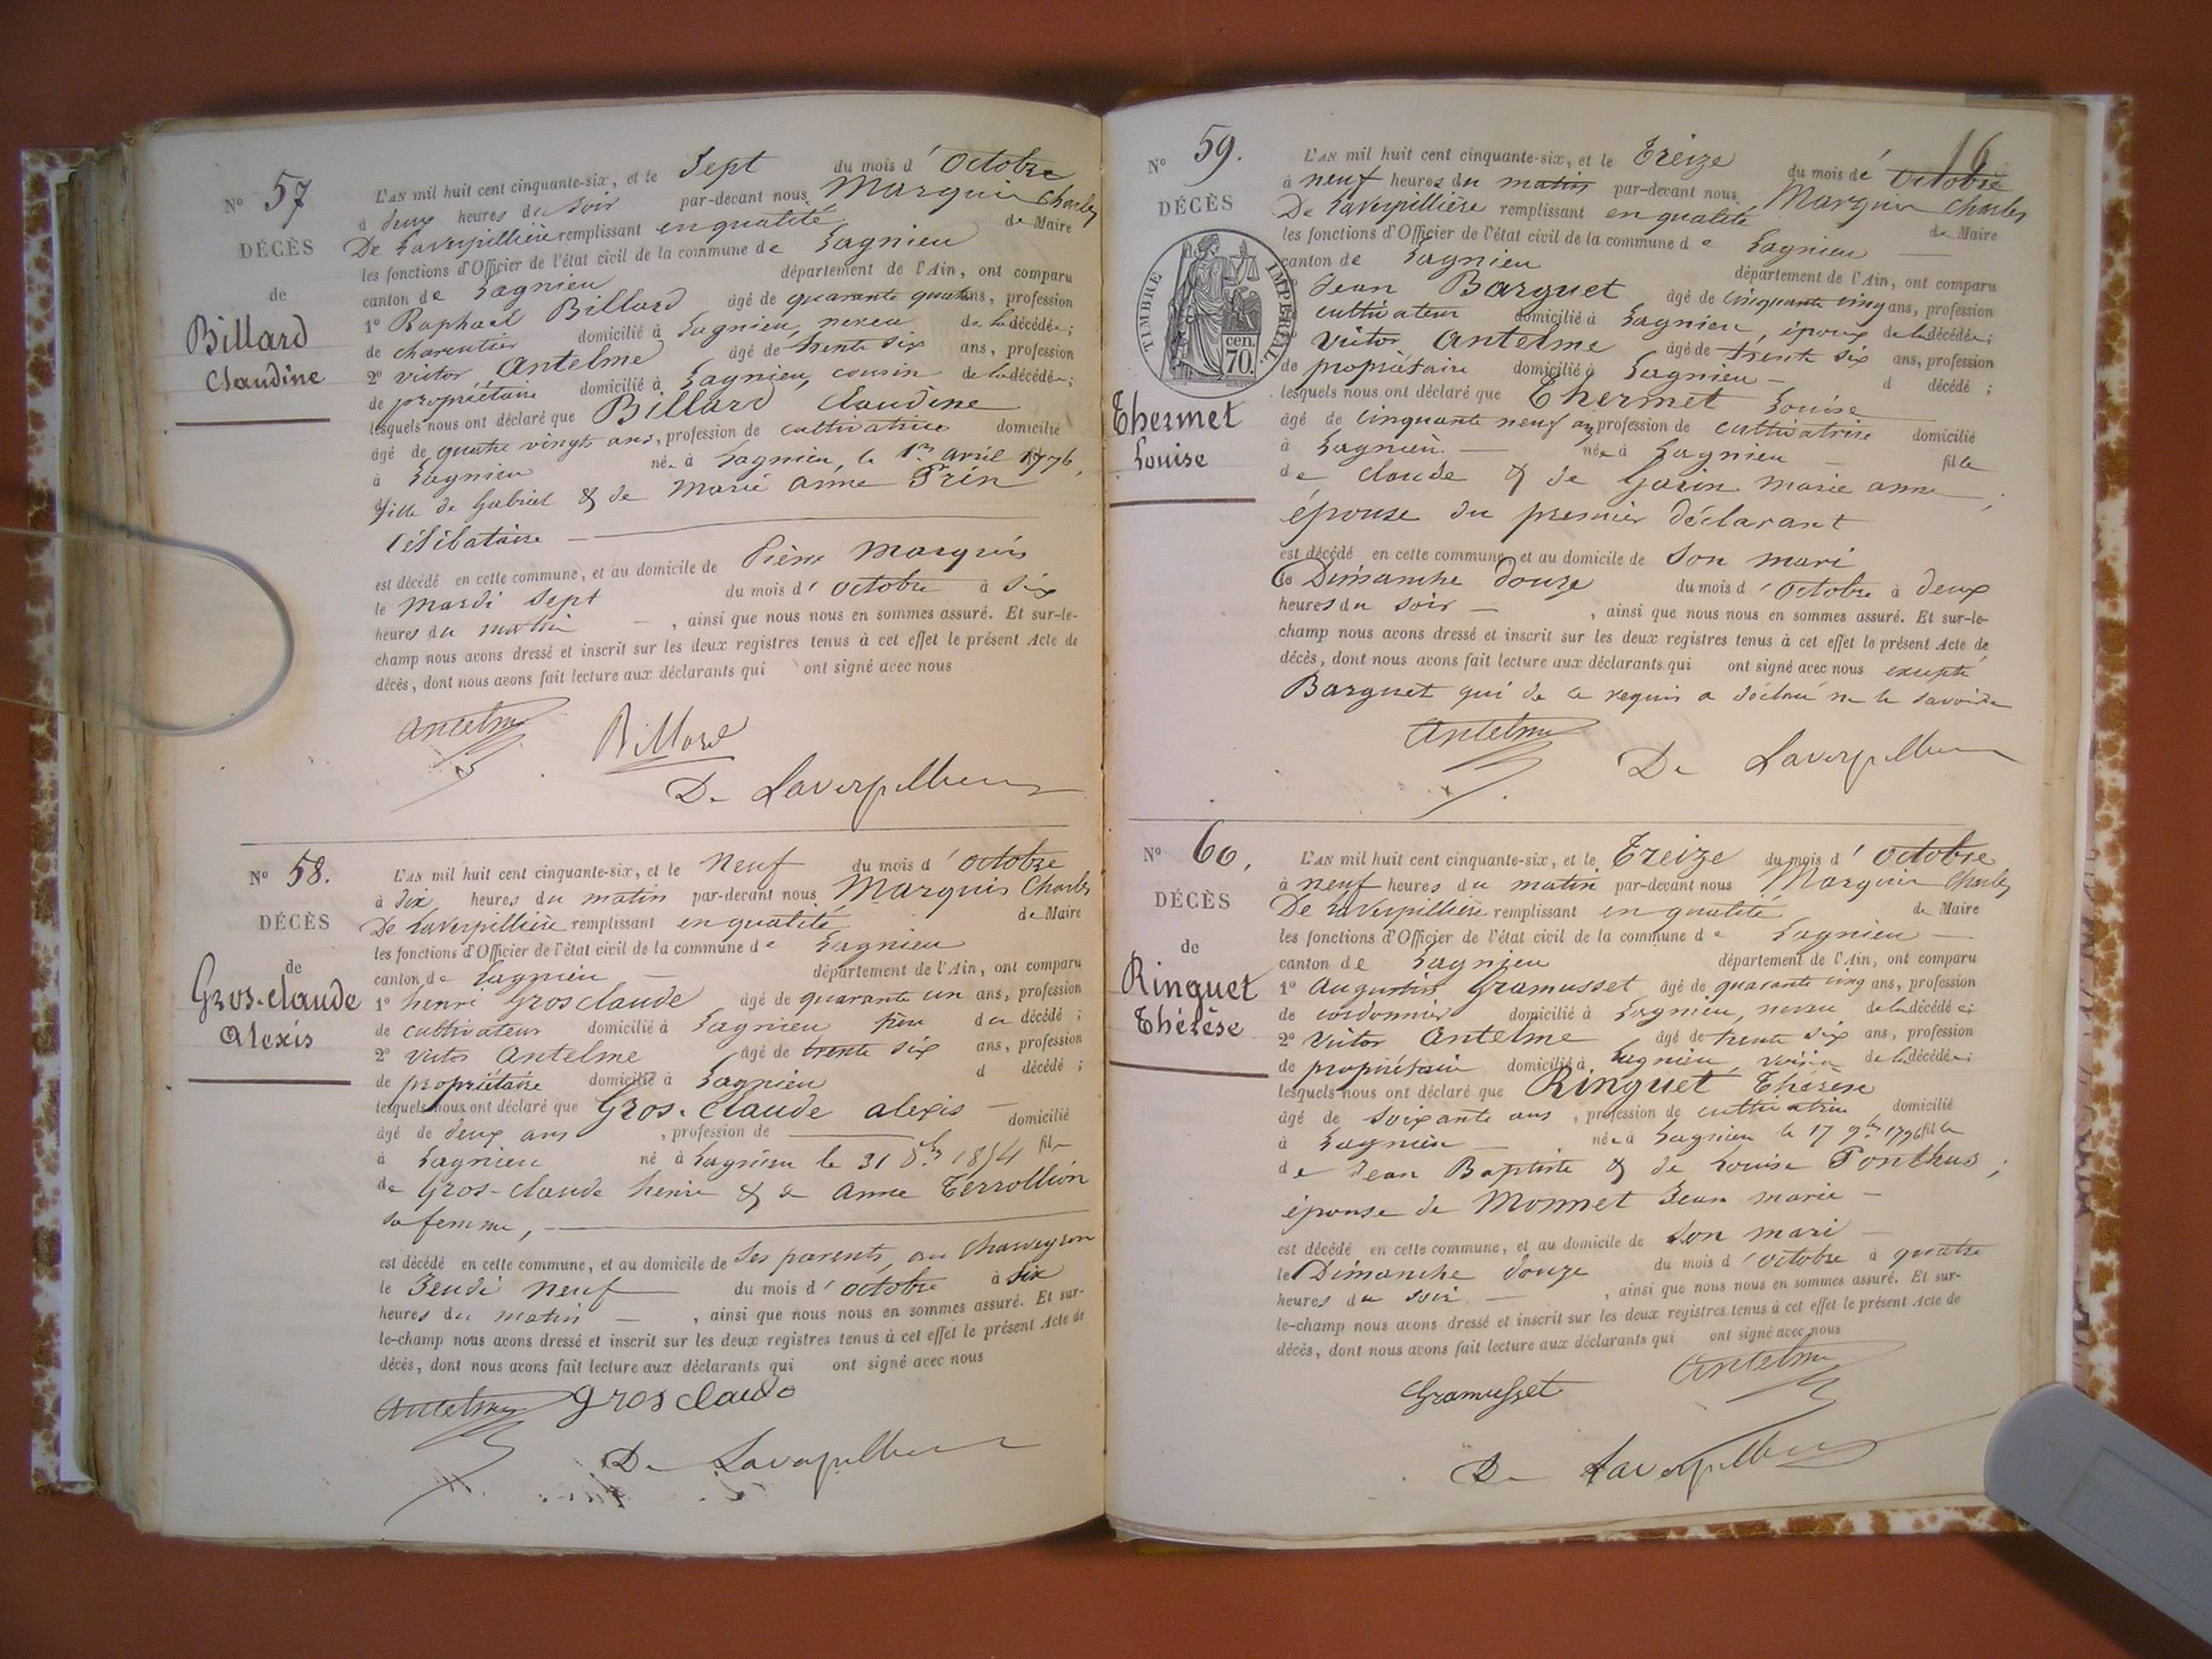 N° 57
DÉCÈS
de
Billard
Claudine
L'AN mil huit cent cinquante-six, et le Sept du mois d'octobre
à deux heures du soir par-devant nous Marquis Charles
De Laverpillière remplissant en qualité de Maire
les fonctions d'Officier de l'état civil de la commune de Lagnieu
canton de Lagnieu département de l'Ain, ont comparu
1° Raphael Billard âgé de quarante quatre ans, profession
de charcutier domicilié à Lagnieu, neveu de la décédée;
2° victor Antelme âgé de trente six ans, profession
de propriétaire domicilié à Lagnieu, cousin de la décédée;
lesquels nous ont déclaré que Billard Claudine
âgé de quatre vingts ans, profession de cultivatrice domicilié
à Lagnieu née à Lagnieu, le 1er avril 1776,
fille de Gabriel & de Marie Anne Frin
Célibataire
est décédé en cette commune, et au domicile de Pierre Marquis
le mardi sept du mois d'octobre à six
heures du matin, ainsi que nous nous en sommes assuré. Et sur-le-
champ nous avons dressé et inscrit sur les deux registres tenus à cet effet le présent Acte de
décès, dont nous avons fait lecture aux déclarants qui ont signé avec nous
Antelme Billard
De Laverpilliere
N° 58.
DÉCÈS
de
Gros-claude
Alexis
L'AN mil huit cent cinquante-six, et le Neuf du mois d'octobre
à dix heures du matin par-devant nous Marquis Charles
De Laverpillière remplissant en qualité de Maire
les fonctions d'Officier de l'état civil de la commune de Lagnieu
canton de Lagnieu département de l'Ain, ont comparu
1° henri Gros claude âgé de quarante un ans, profession
de cultivateur domicilié à Lagnieu père du décédé;
2° victor Antelme âgé de trente six ans, profession
de propriétaire domicilié à Lagnieu d décédé;
lesquels nous ont déclaré que Gros-Claude alexis
âgé de deux ans, profession de domicilié
à Lagnieu né à Lagnieu le 31 8bre 1854 fils
de Gros-claude henri & de Anne Terrollion
sa femme,
est décédé en cette commune, et au domicile de Ses parents, au
le Jeudi neuf du mois d'octobre à six
heures du matin, ainsi que nous nous en sommes assuré. Et sur-
le-champ nous avons dressé et inscrit sur les deux registres tenus à cet effet le présent Acte de
décès, dont nous avons fait lecture aux déclarants qui ont signé avec nous
Antelme gros claude
De Laverpilliere
16
N° 59.
DÉCÈS
TIMBRE IMPÉRIAL
cen.
70.
Thermet
Louise
L'AN mil huit cent cinquante-six, et le Treize du mois d'octobre
à neuf heures du matin par-devant nous Marquis Charles
De Laverpillière remplissant en qualité de Maire
les fonctions d'Officier de l'état civil de la commune de Lagnieu
canton de Lagnieu département de l'Ain, ont comparu
Jean Barquet âgé de cinquante cinq ans, profession
cultivateur domicilié à Lagnieu, époux de la décédée;
victor Antelme âgé de trente six ans, profession
de propriétaire domicilié à Lagnieu d décédé;
lesquels nous ont déclaré que Thermet Louise
âgé de cinquante neuf ans, profession de cultivatrise domicilié
à Lagnieu née à Lagnieu fille
de claude & de Garin marie anne;
épouse du premier déclarant
est décédé en cette commune, et au domicile de son mari
le Dimanche douze du mois d'octobre à deux
heures du soir, ainsi que nous nous en sommes assuré. Et sur-le-
champ nous avons dressé et inscrit sur les deux registres tenus à cet effet le présent Acte de
décès, dont nous avons fait lecture aux déclarants qui ont signé avec nous excepté
Barquet qui de ce requis a déclaré ne le savoir
Antelme De Laverpilliere
N° 60,
DÉCÈS
de
Ringuet
Thérèse
L'AN mil huit cent cinquante-six, et le Treize du mois d'octobre
à neuf heures du matin par-devant nous Marquis Charles
De Laverpillière remplissant en qualité de Maire
les fonctions d'Officier de l'état civil de la commune de Lagnieu
canton de Lagnieu département de l'Ain, ont comparu
1° Augustin Gramusset âgé de quarante cinq ans, profession
de cordonnier domicilié à Lagnieu, neveu de la décédée;
2° victor Antelme âgé de trente six ans, profession
de propriétaire domicilié à Lagnieu, voisin de la décédée;
lesquels nous ont déclaré que Ringuet Thérèse
âgé de soixante ans, profession de cultivatrice domicilié
à Lagnieu née à Lagnieu le 17 9bre 1796 fille
de Jean Baptiste & de Louise Ponthus;
épouse de Monnet Jean marie
est décédé en cette commune, et au domicile de son mari
le Dimanche douze du mois d'octobre à quatre
heures du soir, ainsi que nous nous en sommes assuré. Et sur-
le-champ nous avons dressé et inscrit sur les deux registres tenus à cet effet le présent Acte de
décès, dont nous avons fait lecture aux déclarants qui ont signé avec nous
Gramusset Antelme
De Laverpilliere